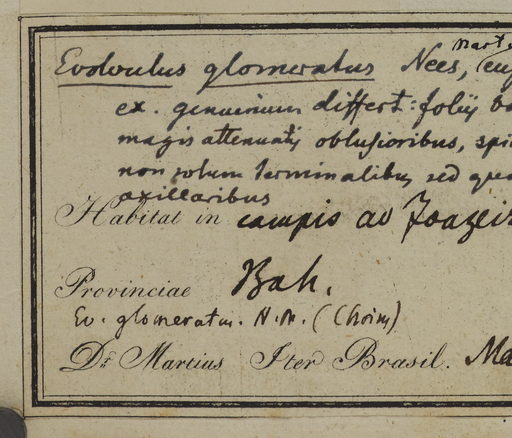 Evolvulus glomeratus Nees, Mart.
ex. genuinum differt: foliis
magis attenuatis obtusioribus,
non solum terminalibus sed
axillaribus
Habitat in campis ad Joazeir
Provinciae Bah.
Ev. glomeratus. N. M. (Choisy)
Dr. Martius Iter Brasil. Ma